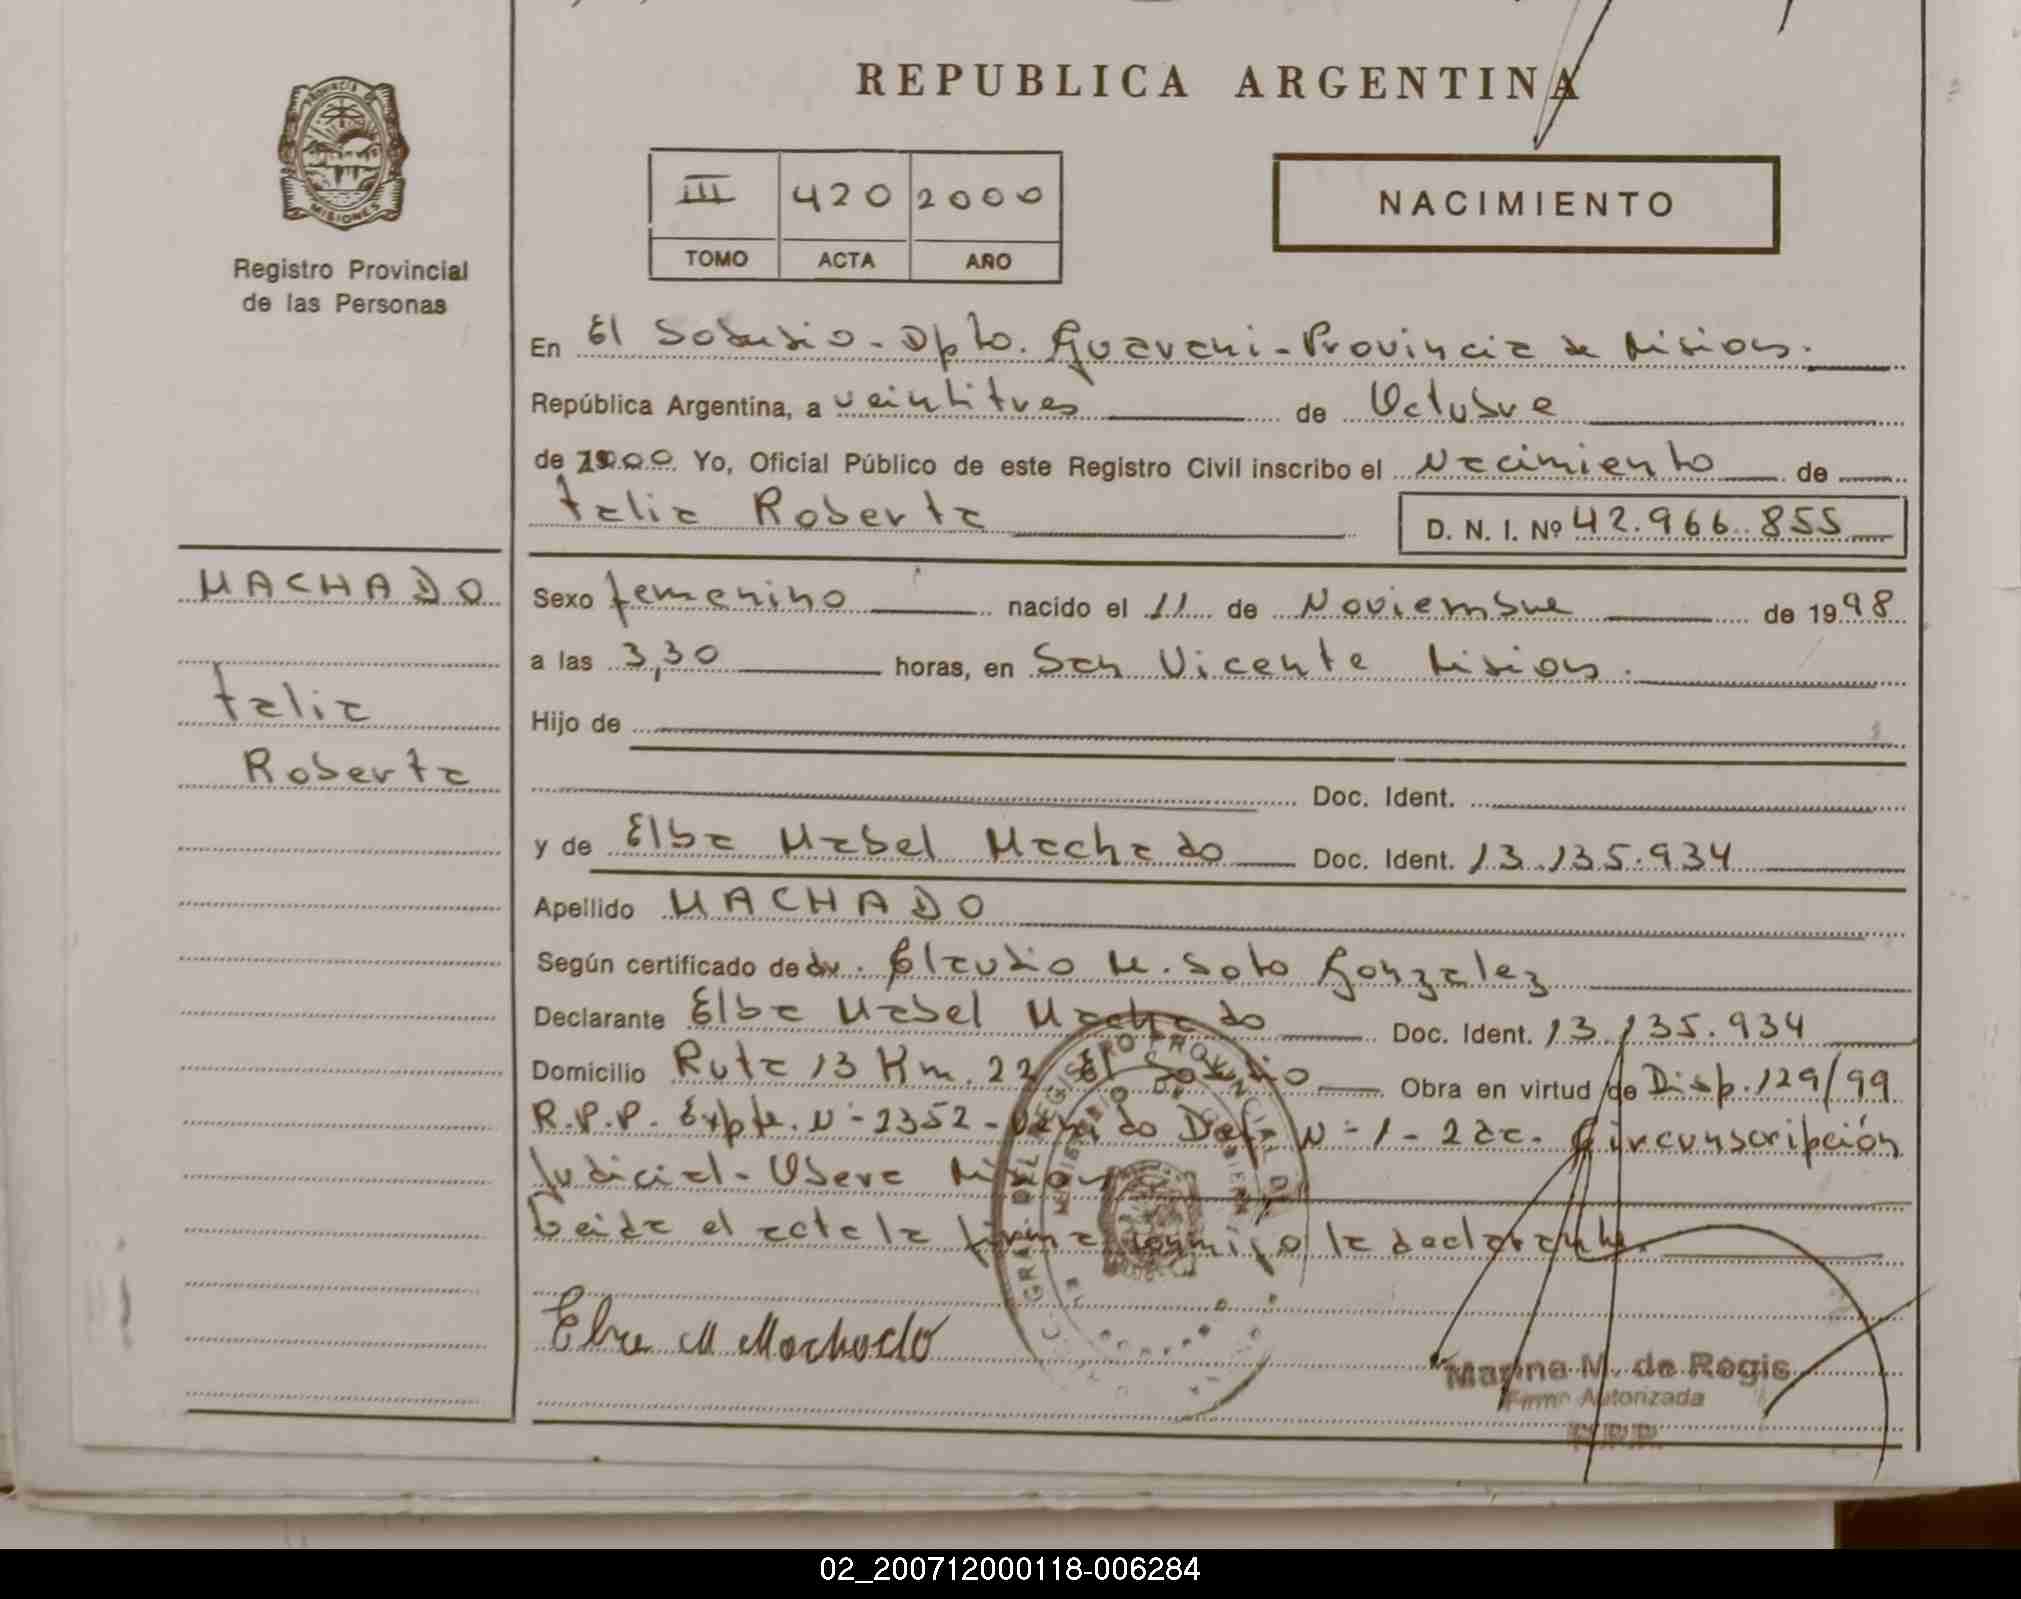 REPUBLICA ARGENTINA
PROVINCIA DE
MISIONES
Registro Provincial
de las Personas
III 420 2000
TOMO ACTA AÑO
NACIMIENTO
En El Soberbio - Dpto. Guarani - Provincia de Misiones.
República Argentina, a veintitres de Octubre
de 2000 Yo, Oficial Público de este Registro Civil inscribo el Nacimiento de
Talia Roberta D. N. I. Nº 42.966.855
MACHADO
Talia
Roberta
Sexo femenino nacido el 11 de Noviembre de 1998
a las 3,30 horas, en San Vicente Misiones.
Hijo de
Doc. Ident.
y de Elba Mabel Machado Doc. Ident. 13.135.934
Apellido MACHADO
Según certificado de dr. Claudio M. Soto Gonzalez
Declarante Elba Mabel Machado Doc. Ident. 13.135.934
Domicilio Ruta 13 Km. 22 El Soberbio Obra en virtud de Disp. 129/99
R.P.P. Expte. N- 2352 - Def. N- 1 - 2da. Circunscripción
Judicial - Obera Misiones
Leida el acta la firma conmigo la declarante.
Elba M Machado
Marina M. de Regis
Firma Autorizada
R.P.P.
02_200712000118-006284